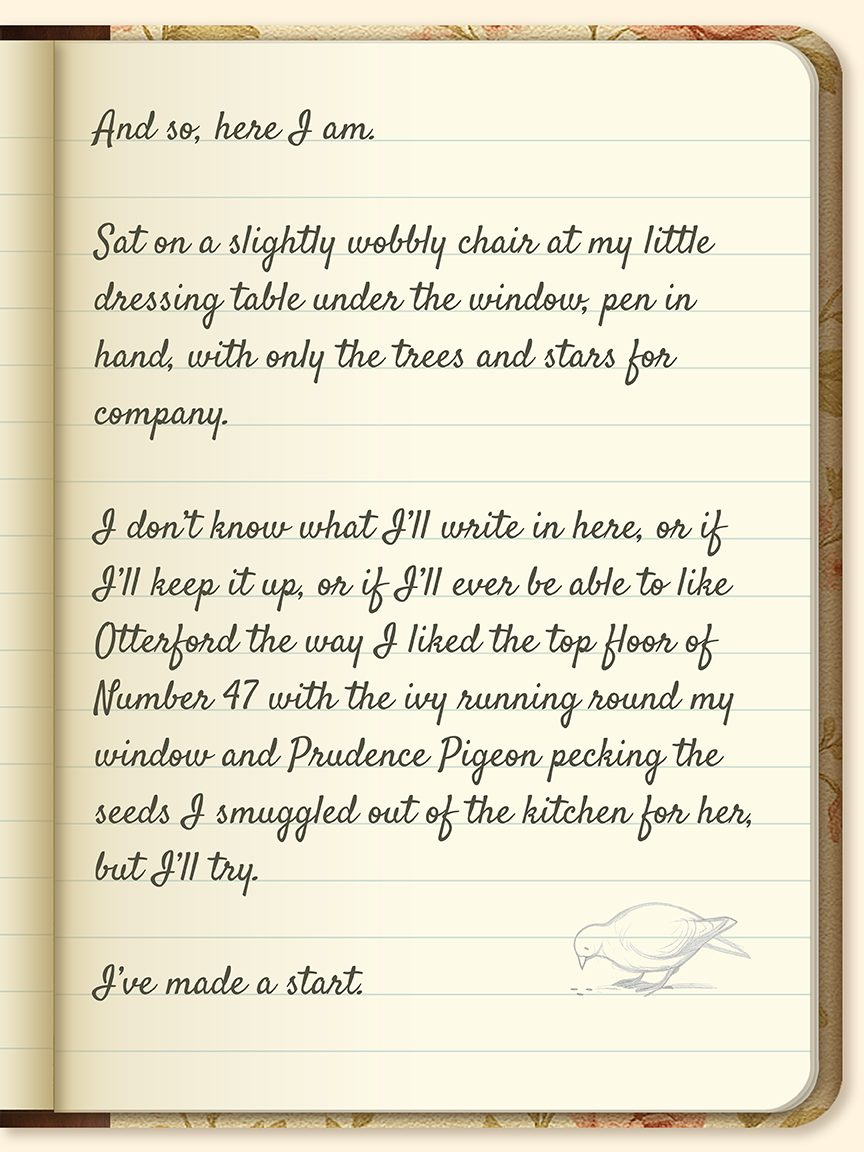 And so, here I am.
Sat on a slightly wobbly chair at my little
dressing table under the window, pen in
hand, with only the trees and stars for
company.
I don't know what I'll write in here, or if
I'll keep it up, or if I'll ever be able to like
Otterford the way I liked the top floor of
Number 47 with the ivy running round my
window and Prudence Pigeon pecking the
seeds I smuggled out of the kitchen for her,
but I'll try.
I've made a start.